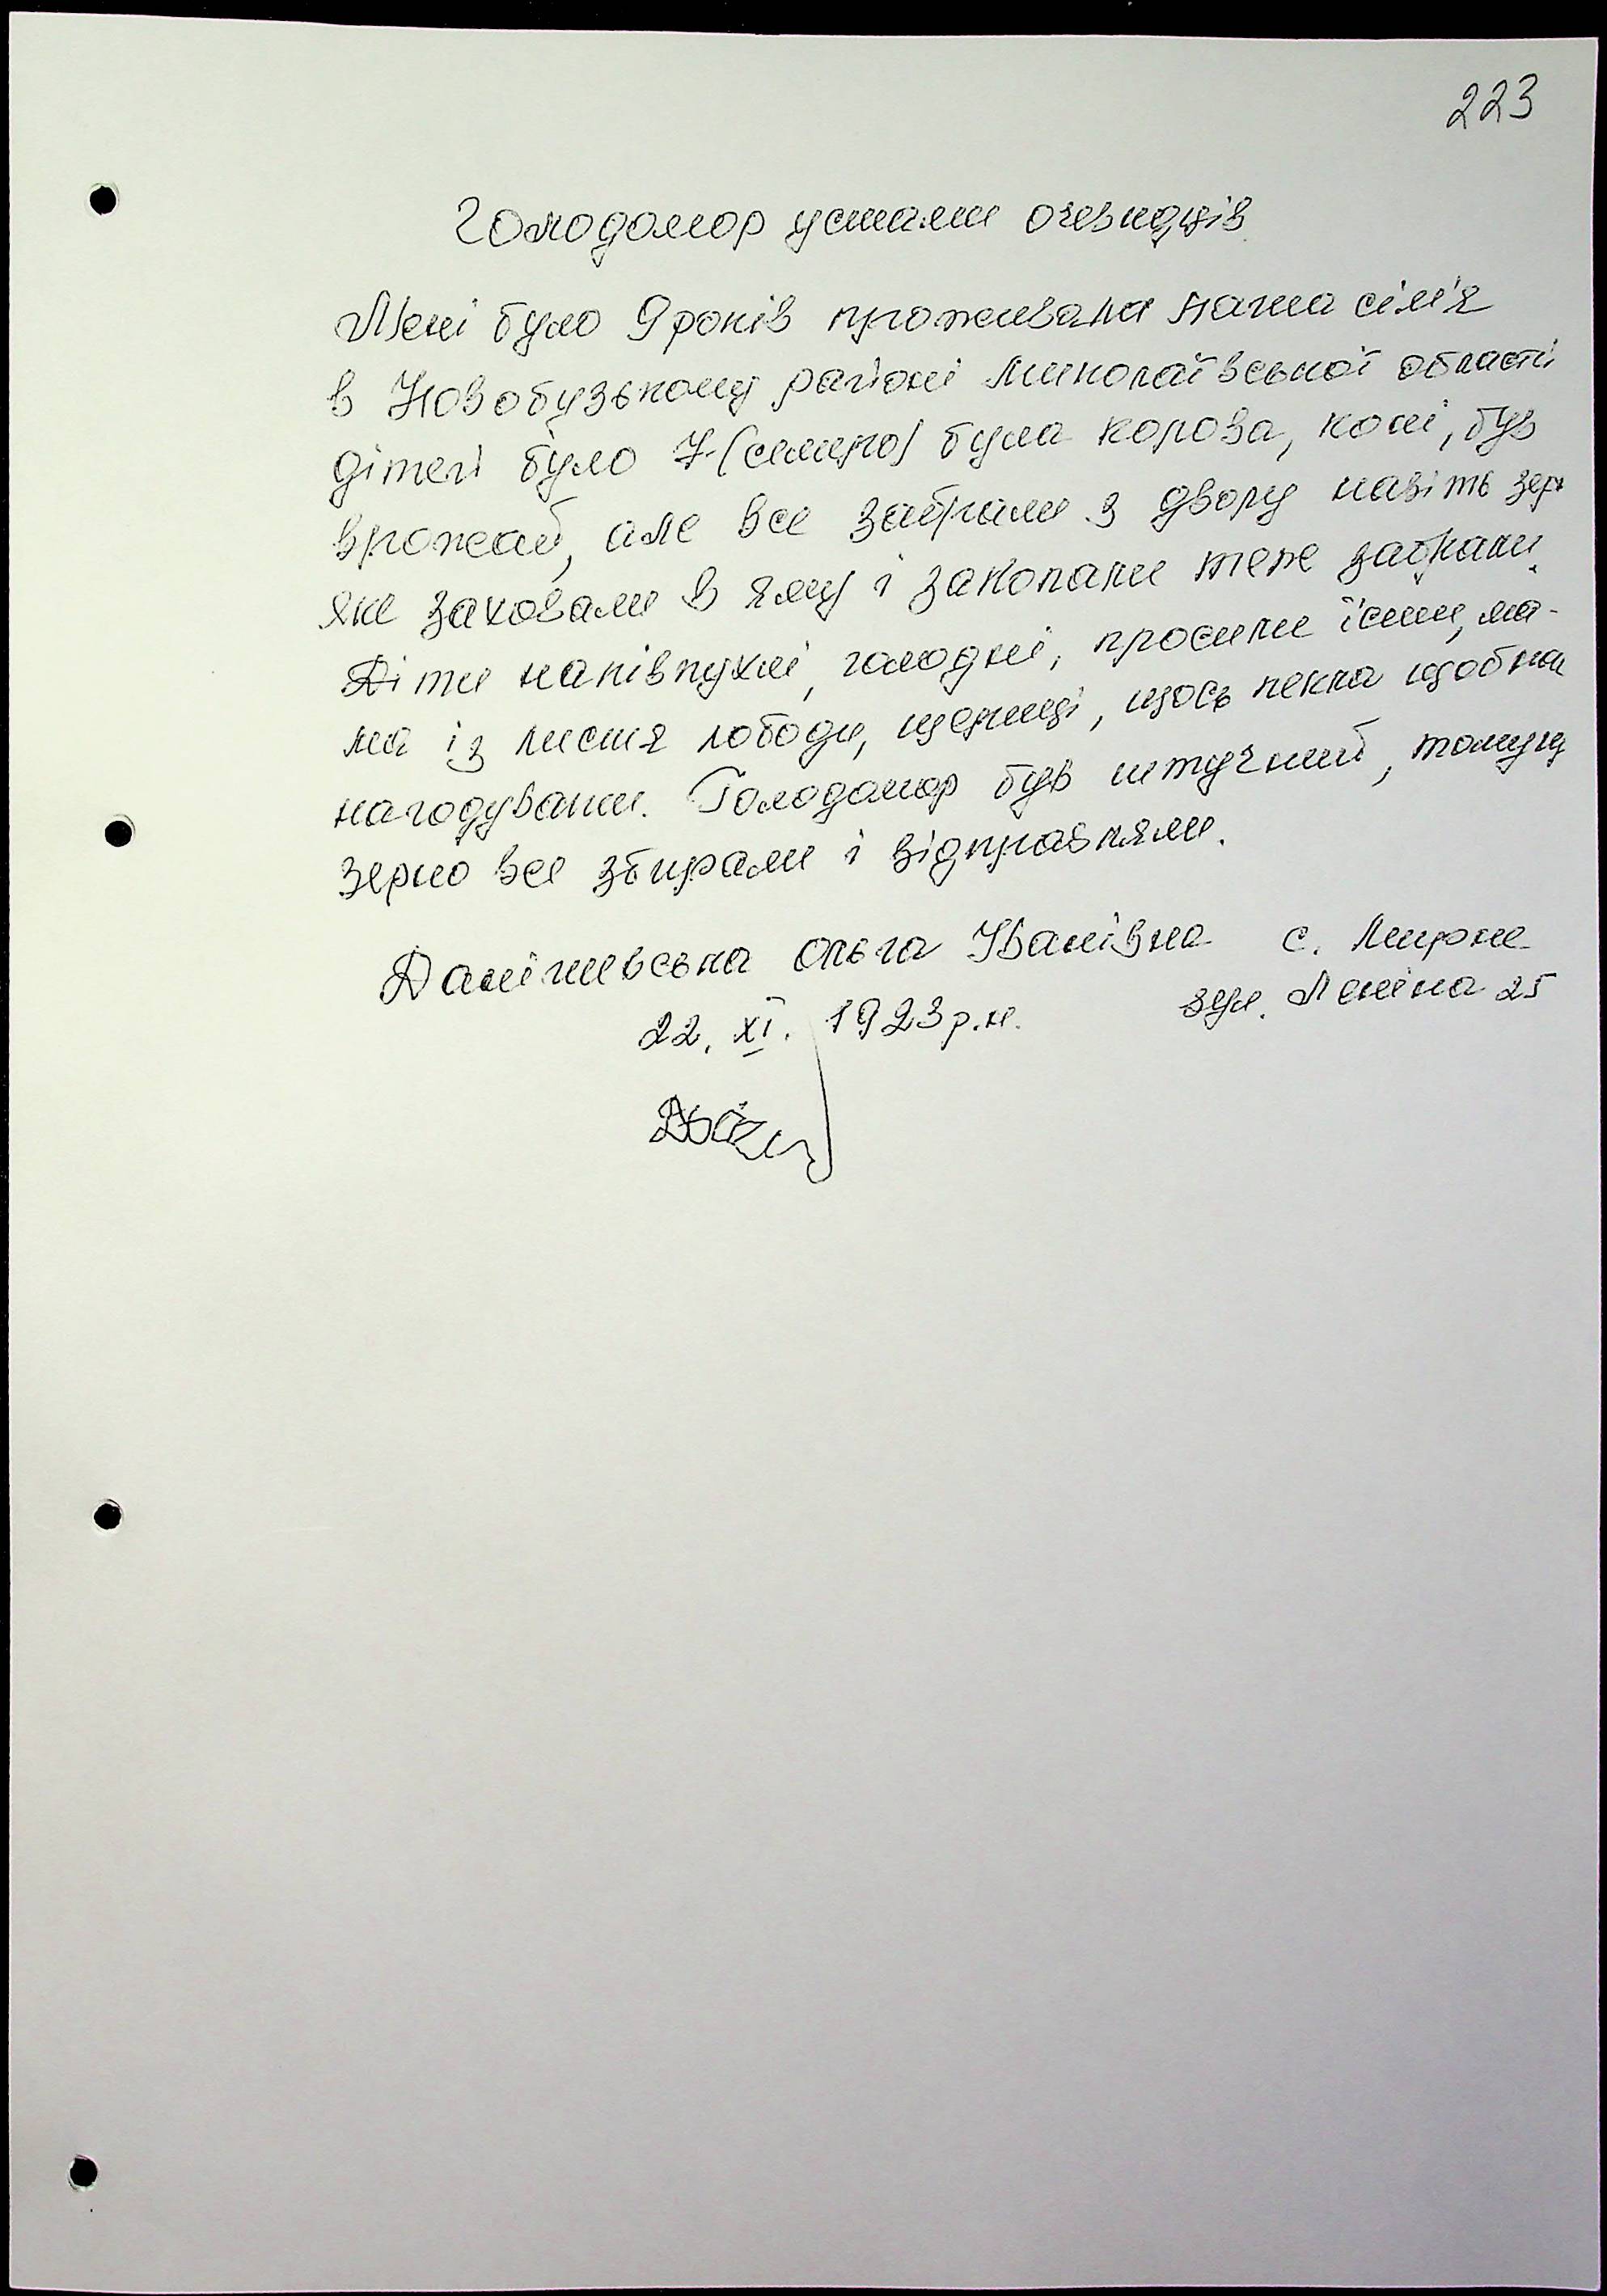 223
Голодомор устами очевидців
Мені було 9 років проживала наша сім'я
в Новобузькому районі Миколаївської області
дітей було 7 (семеро) була корова, коні, був
врожай, але все забрали з двору навіть зерн
яке заховали в яму і закопали теж забрали.
Діти напівпухлі, голодні, просили їсти, ма-
ма із листя лободи, щериці, щось пекла щоб на
нагодувати. Голодомор був штучний, тому щ
зерно все збирали і відправляли.
Данішевська Ольга Іванівна с. Мирне
22. XI. 1923 р.н. вул. Леніна 25